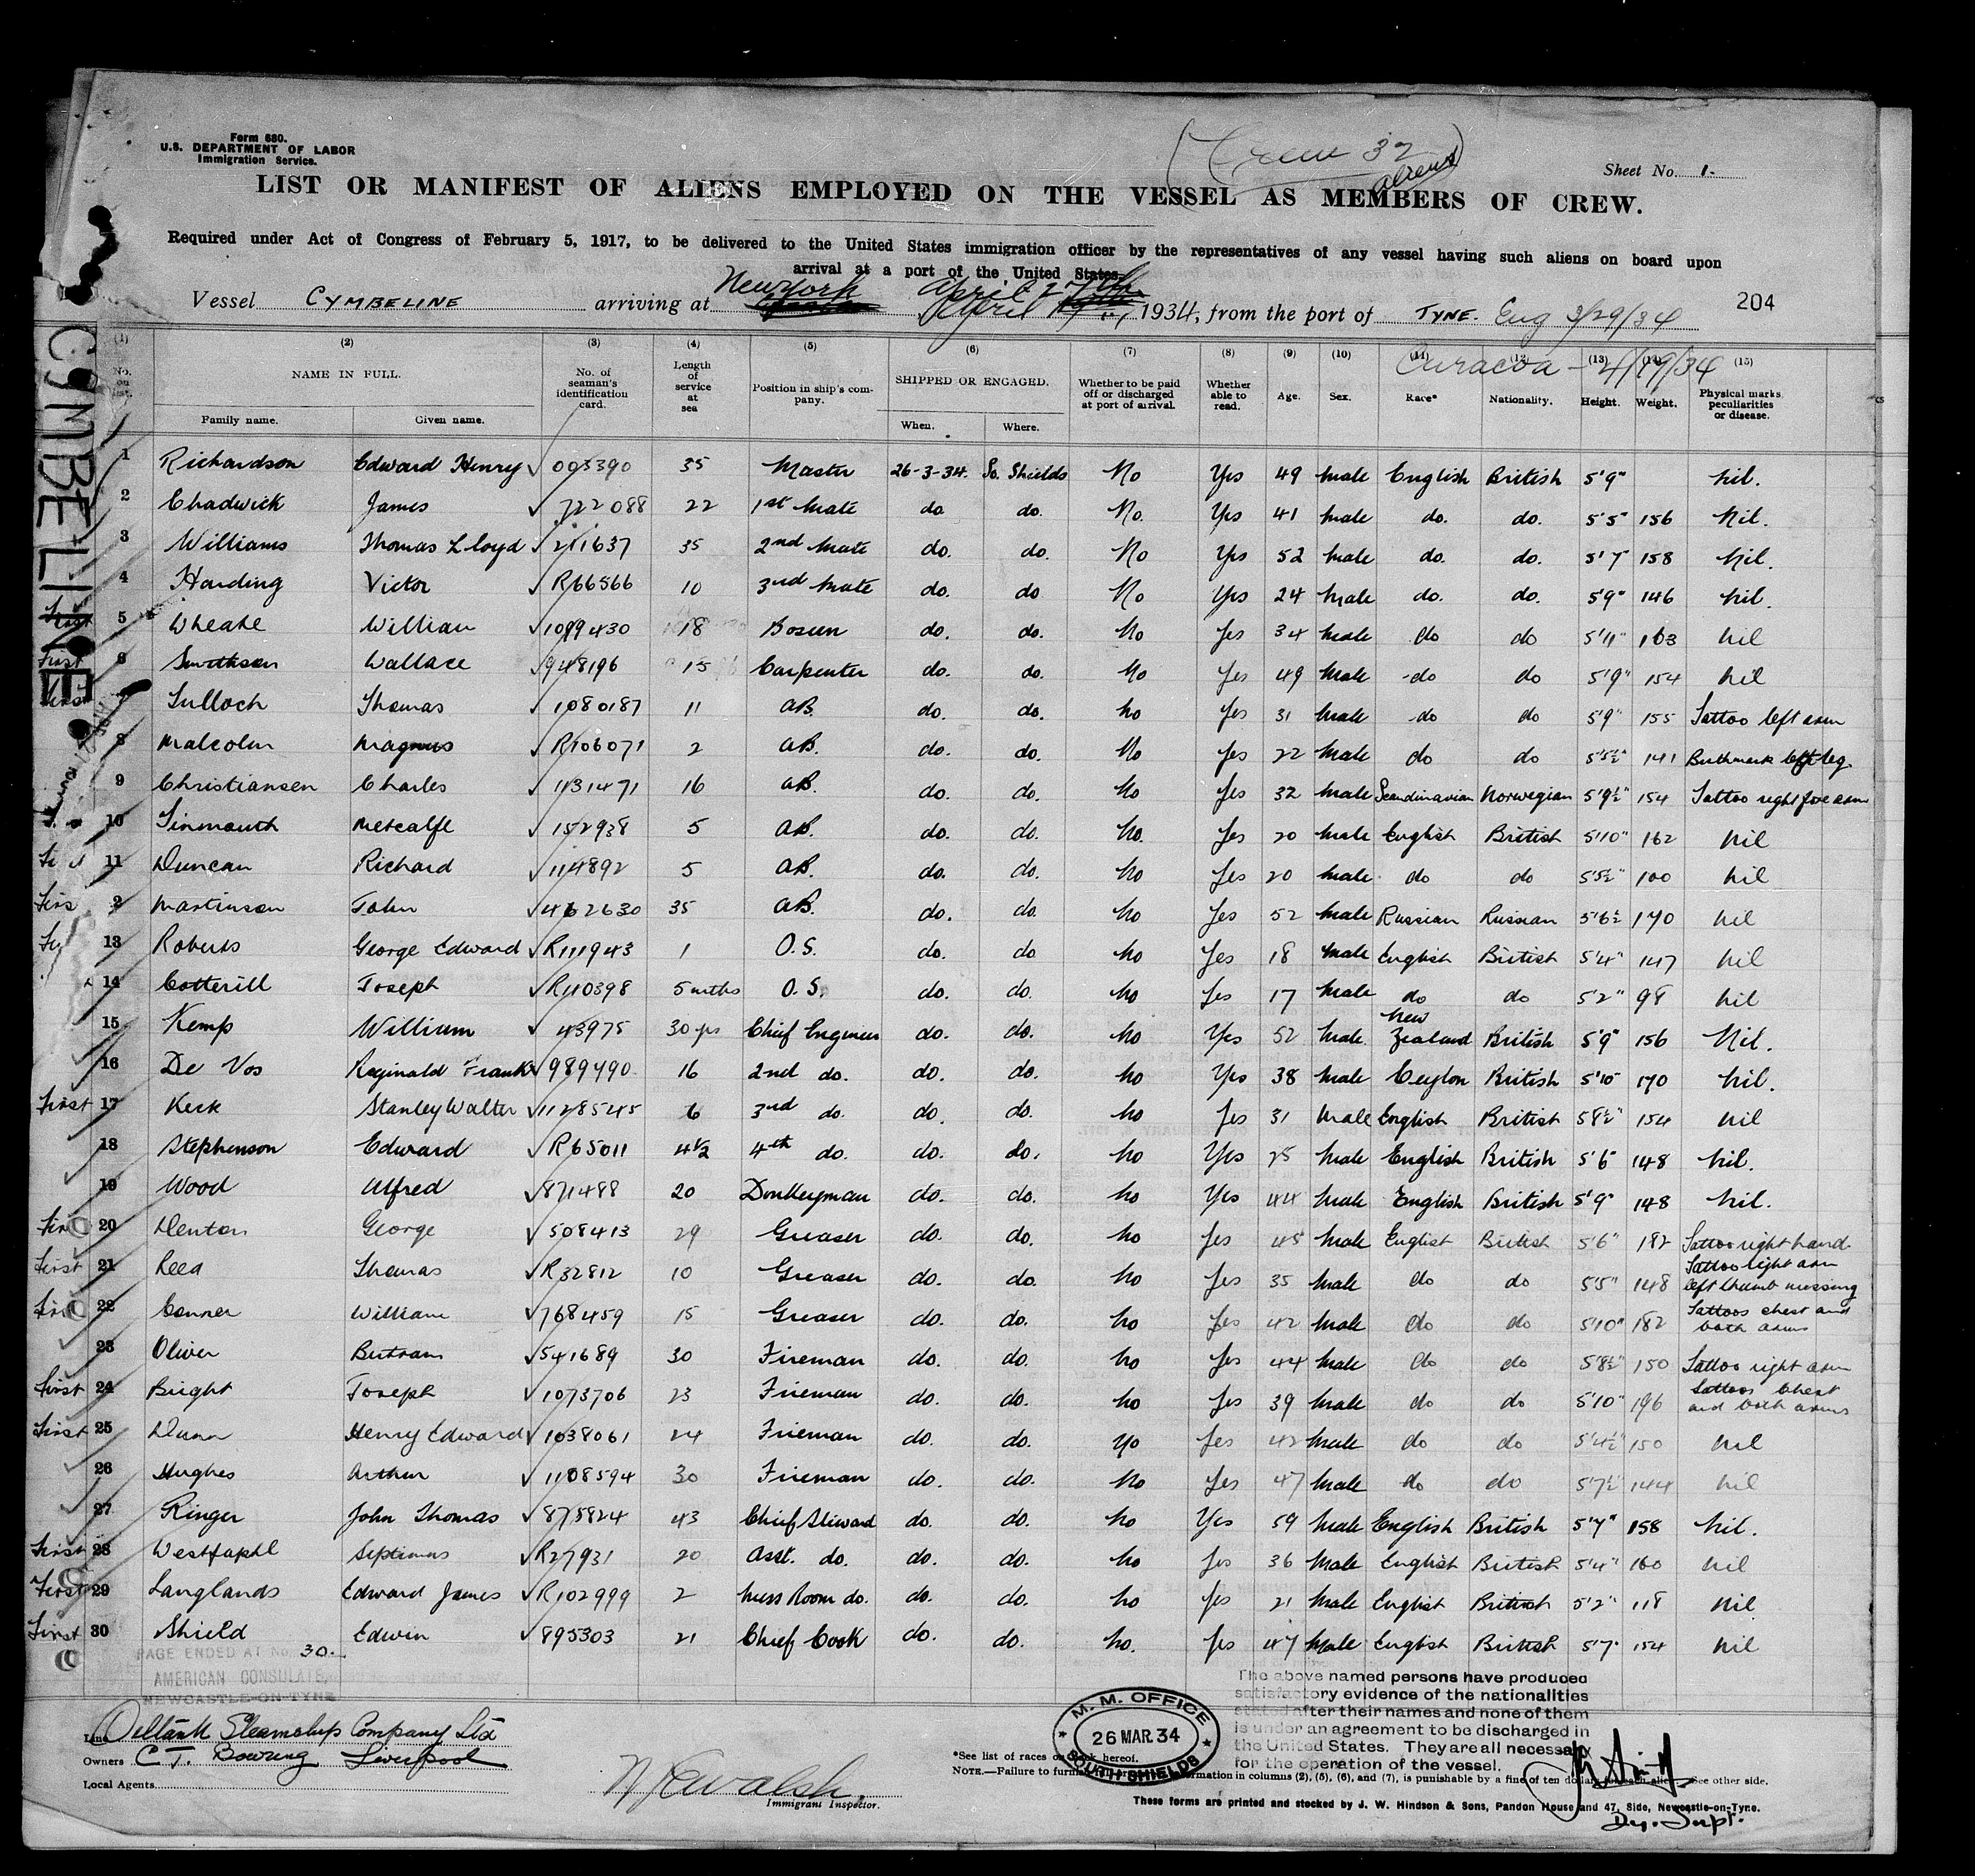 Form 680.
U.S. DEPARTMENT OF LABOR
Immigration Service.
(Crew 32
aliens)
Sheet No. 1.
LIST OR MANIFEST OF ALIENS EMPLOYED ON THE VESSEL AS MEMBERS OF CREW.
Required under Act of Congress of February 5, 1917, to be delivered to the United States immigration officer by the representatives of any vessel having such aliens on board upon
arrival at a port of the United States.
Vessel CYMBELINE arriving at New York April 1934, from the port of TYNE. Eng 3/29/34 204
Curacoa - 4/19/34
CYMBELINE
(1) (2) (3) (4) (5) (6) (7) (8) (9) (10) (11) (12) (13) (14) (15)
No. on list. NAME IN FULL. Family name. Given name. No. of seaman's identification card. Length of service at sea Position in ship's company. SHIPPED OR ENGAGED. When. Where. Whether to be paid off or discharged at port of arrival. Whether able to read. Age. Sex. Race* Nationality. Height. Weight. Physical marks, peculiarities or disease.
1 Richardson Edward Henry 003390 35 Master 26-3-34. So. Shields No Yes 49 Male English British 5'9" Nil.
2 Chadwick James 722088 22 1st Mate do do. No. Yes 41 Male do. do. 5'5" 156 Nil.
3 Williams Thomas Lloyd 211637 35 2nd Mate do. do. No Yes 52 Male do. do. 5'7 158 Nil.
4 Harding Victor R66566 10 3rd Mate do. do No Yes 24 Male do. do. 5'9" 146 Nil.
First 5 Wheale William 1099430 18 Bosun do. do. No Yes 34 Male do do 5'11" 163 Nil
First 6 Smithson Wallace 948196 15 Carpenter do. do. No Yes 49 Male do do 5'9" 154 Nil
First 7 Tulloch Thomas 1080187 11 A.B. do. do. No Yes 31 Male do do 5'9" 155 Tattoo left arm
8 Malcolm Magnus R106071 2 A.B. do. do. No Yes 22 Male do do 5'5½" 141 Birthmark left leg
9 Christiansen Charles 1131471 16 A.B. do. do. No Yes 32 Male Scandinavian Norwegian 5'9½" 154 Tattoo right fore arm
10 Tinmouth Metcalfe 152938 5 A.B. do. do. No. Yes 20 Male English British 5'10" 162 Nil
11 Duncan Richard 114892 5 A.B. do. do. No Yes 20 Male do do 5'5½" 100 Nil
Firs 2 Martinson John 462630 35 A.B. do. do. No Yes 52 Male Russian Russian 5'6½ 170 Nil
13 Roberts George Edward R111943 1 O.S. do. do No Yes 18 Male English British 5'4" 147 Nil
14 Cotterill Joseph R110398 5 mths O.S. do. do. No Yes 17 Male do do 5'2" 98 Nil
15 Kemp William 43975 30 yrs Chief Engineer do. do. No Yes 52 Male New Zealand British 5'9" 156 Nil.
16 De Vos Reginald Frank 989490 16 2nd do. do. do. No Yes 38 Male Ceylon British 5'10" 170 Nil.
First 17 Keck Stanley Walter 1128545 6 3rd do. do. do. No Yes 31 Male English British 5'8½" 154 Nil
18 Stephenson Edward R65011 4½ 4th do. do. do. No Yes 25 Male English British 5'6 148 Nil.
19 Wood Alfred 871488 20 Donkeyman do. do. No Yes 44 Male English British 5'9" 148 Nil.
20 Denton George 508413 29 Greaser do. do. No Yes 45 Male English British 5'6" 182 Tattoo right hand
First 21 Reed Thomas R32812 10 Greaser do. do. No Yes 35 Male do do 5'5" 148 Tattoo right arm left thumb missing
22 Conner William 768459 15 Greaser do. do. No Yes 42 Male do do 5'10" 182 Tattoos chest and both arms
23 Oliver Bertram 541689 30 Fireman do. do. No Yes 44 Male do do 5'8½" 150 Tattoo right arm
First 24 Bright Joseph 1073706 23 Fireman do. do. No Yes 39 Male do do 5'10" 196 Tattoos chest and both arms
First 25 Dunn Henry Edward 1038061 24 Fireman do. do. No Yes 42 Male do do 5'4½" 150 Nil
26 Hughes Arthur 1108594 30 Fireman do. do. No Yes 47 Male do do 5'7½" 144 Nil
27 Ringer John Thomas 875824 43 Chief Steward do. do. No Yes 59 Male English British 5'7" 158 Nil.
First 28 Westfaphl Septimus R27931 20 Asst. do. do. do. No Yes 36 Male English British 5'4" 160 Nil
First 29 Langlands Edward James R102999 2 Mess Room do. do. do. No Yes 21 Male English British 5'2" 118 Nil
First 30 Shield Edwin 895303 21 Chief Cook do. do. No. Yes 47 Male English British 5'7" 154 Nil
PAGE ENDED AT No. 30.
AMERICAN CONSULATE,
NEWCASTLE-ON-TYNE
The above named persons have produced
satisfactory evidence of the nationalities
stated after their names and none of them
is under an agreement to be discharged in
the United States. They are all necessary
for the operation of the vessel.
M. M. OFFICE
26 MAR 34
SOUTH SHIELDS
Line Oiltank Steamship Company Ltd
Owners C.T. Bowring Liverpool
Local Agents
Walsh.
Immigrant Inspector.
*See list of races on back hereof.
NOTE.—Failure to furnish information in columns (2), (5), (6), and (7), is punishable by a fine of ten dollars for each alien. See other side.
These forms are printed and stocked by J. W. Hindson & Sons, Pandon House and 47, Side, Newcastle-on-Tyne.
Dy. Supt.